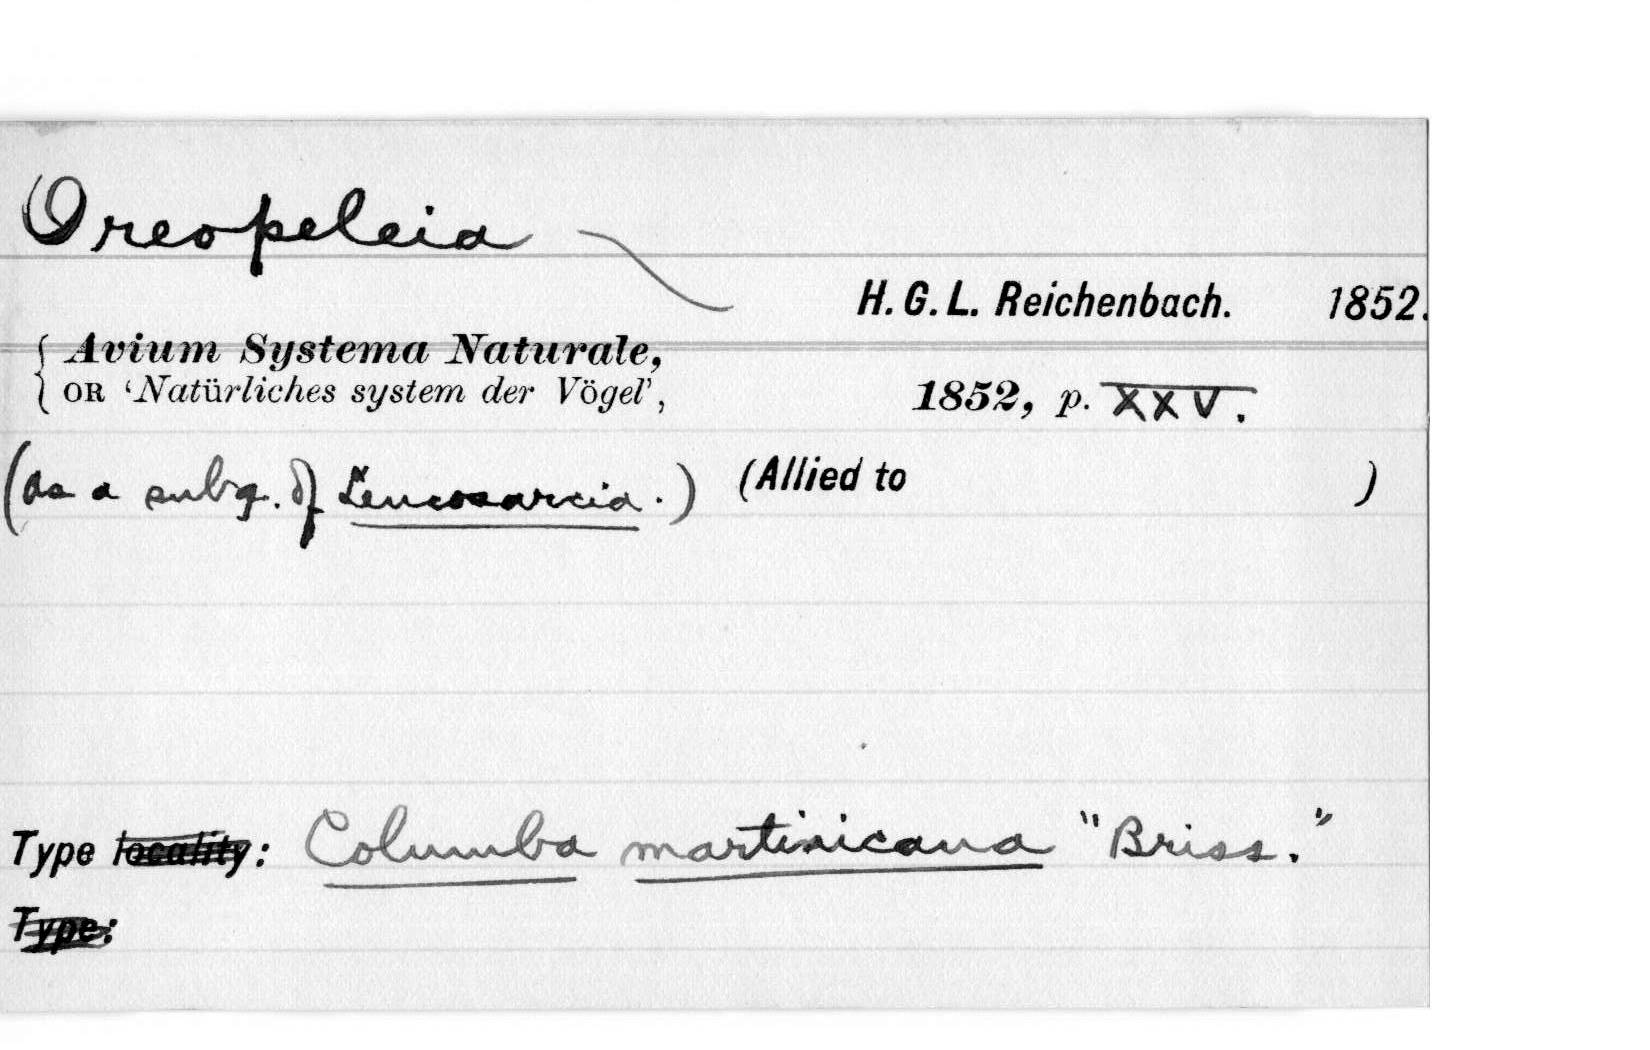 Oreopeleia
H. G. L. Reichenbach. 1852.
Avium Systema Naturale,
OR ‘Natürliches system der Vögel’, 1852, p. XXV.
(as a subg. of Leucosarcia.) (Allied to )
Type locality: Columba martinicana "Briss."
Type: